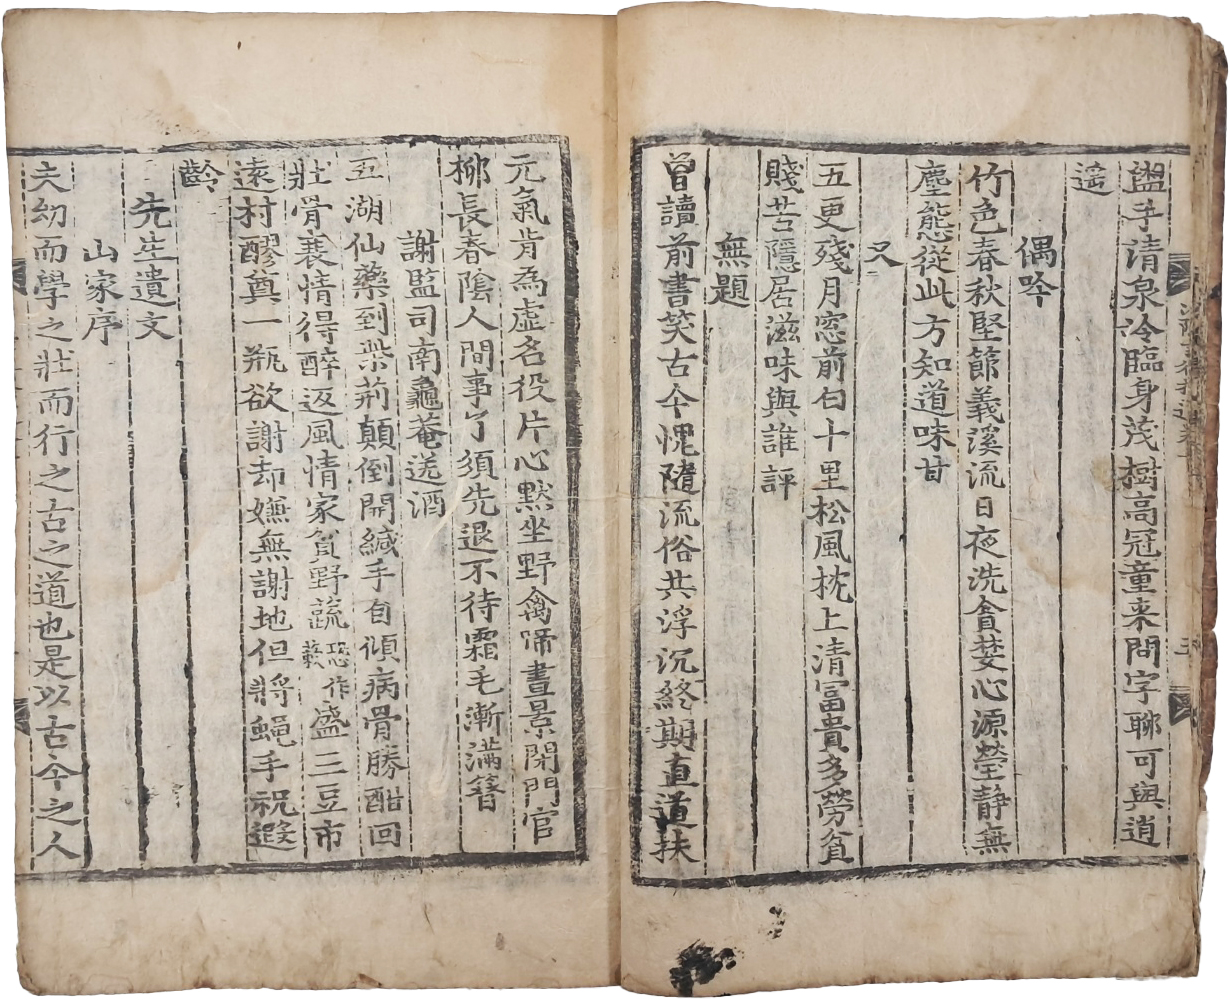 盥手清泉冷臨身茂樹高冠童来問字聊可與逍
遥
偶吟
竹色春秋堅節義溪流日夜洗貪婪心源瑩静無
塵態從此方知道味甘
又
五更殘月窓前白十里松風枕上清富貴多勞貧
賤苦隱居滋味與誰評
無題
曽讀前書笑古今愧隨流俗共浮沉終期直道扶
元氣肯為虚名役片心默坐野禽啼晝景閑門官
柳長春陰人間事了須先退不待霜毛漸滿簪
謝監司南龜菴送酒
五湖仙藥到柴荊顛倒開緘手自傾病骨勝酣回
壯骨衰情得醉返風情家貧野蔬藪恐作盛三豆市
遠村醪奠一瓶欲謝却嫌無謝地但將蝇手祝遐
齡
先生遺文
山家序
夫幼而學之壯而行之古之道也是以古今之人